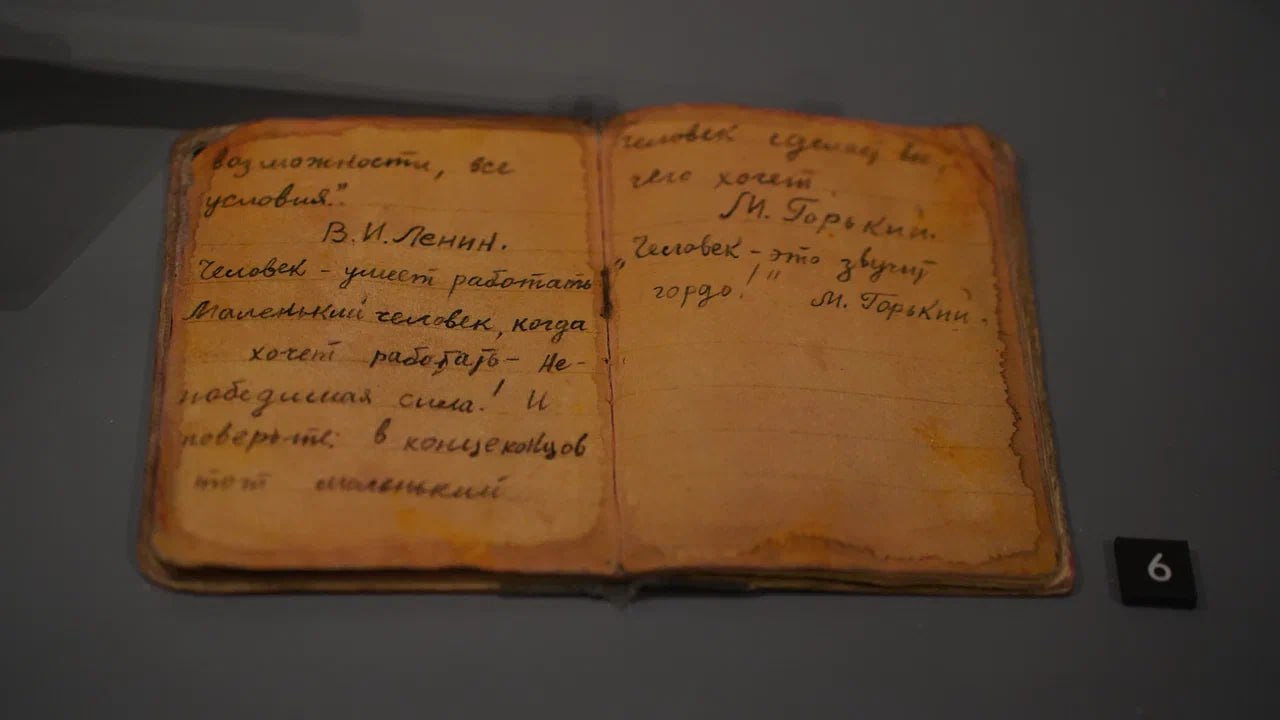 возможности, все
условия."
В.И. Ленин.
Человек - умеет работать
Маленький человек, когда
хочет работать - не-
победимая сила! И
поверьте: в концеконцов
тот маленький
человек сделает все,
чего хочет.
М. Горький.
„Человек - это звучит
гордо!" М. Горький.
6